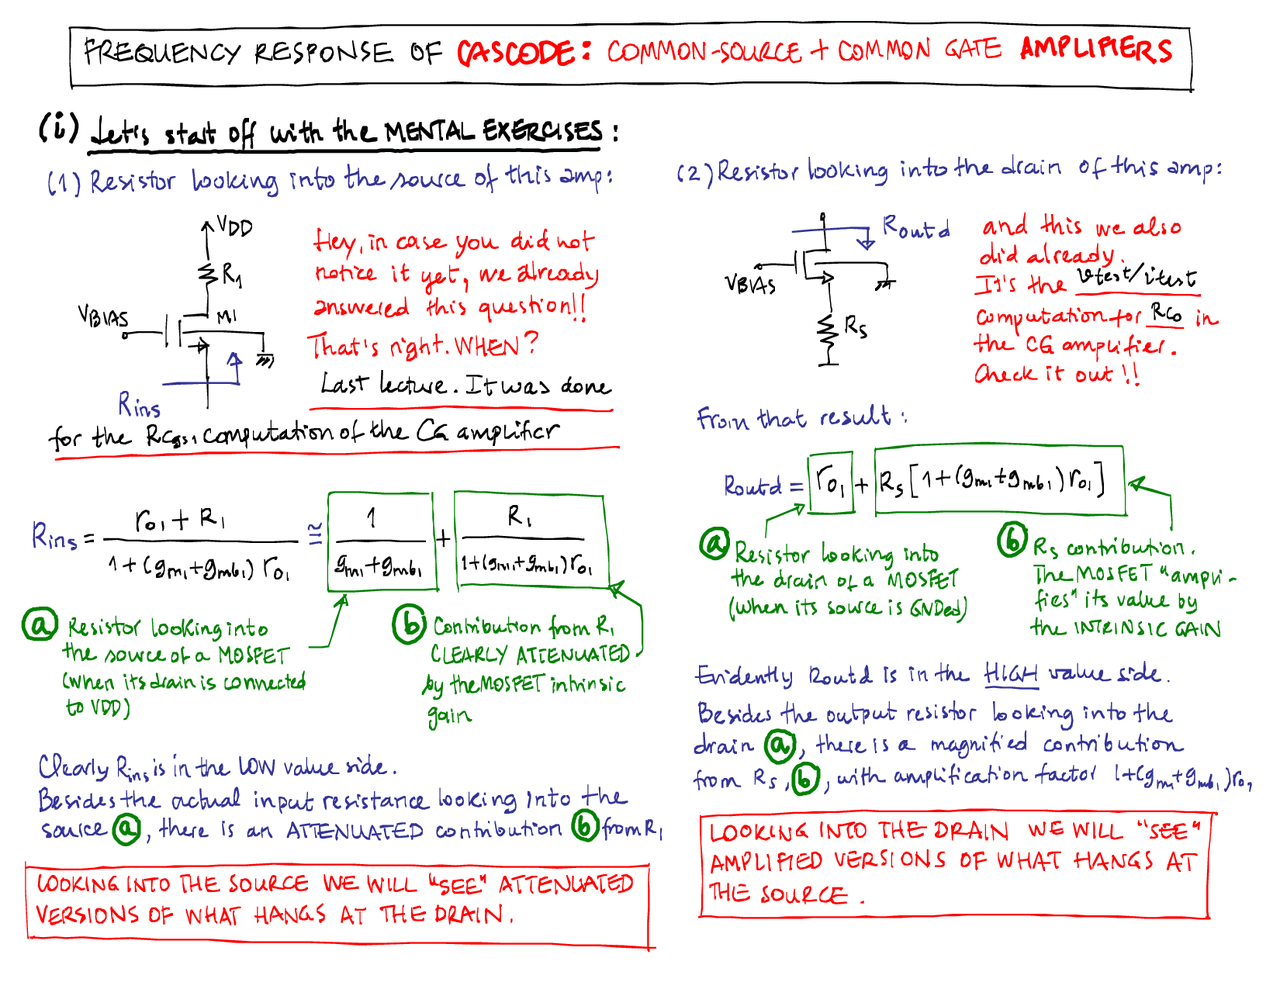 FREQUENCY RESPONSE OF CASCODE: COMMON-SOURCE + COMMON GATE AMPLIFIERS
(i) Let's start off with the MENTAL EXERCISES:
(1) Resistor looking into the source of this amp:
VDD
R1
M1
VBIAS
Rins
Hey, in case you did not
notice it yet, we already
answered this question!!
That's right. WHEN?
Last lecture. It was done
for the computation of the CG amplifier
Rins = (ro1 + R1) / (1+(gm1+gmb1) ro1) ≅ 1 / (gm1+gmb1) + R1 / (1+(gm1+gmb1) ro1)
(a) Resistor looking into
the source of a MOSFET
(when its drain is connected
to VDD)
(b) Contribution from R1
CLEARLY ATTENUATED
by the MOSFET intrinsic
gain
Clearly Rins is in the LOW value side.
Besides the actual input resistance looking into the
source (a), there is an ATTENUATED contribution (b) from R1
LOOKING INTO THE SOURCE WE WILL "SEE" ATTENUATED
VERSIONS OF WHAT HANGS AT THE DRAIN.
(2) Resistor looking into the drain of this amp:
Routd
VBIAS
Rs
and this we also
did already.
It's the vtest/itest
computation for Rco in
the CG amplifier.
Check it out!!
From that result:
Routd = ro1 + Rs[1+(gm1+gmb1)ro1]
(a) Resistor looking into
the drain of a MOSFET
(when its source is GNDed)
(b) Rs contribution.
The MOSFET "ampli-
fies" its value by
the INTRINSIC GAIN
Evidently Routd is in the HIGH value side.
Besides the output resistor looking into the
drain (a), there is a magnified contribution
from Rs, (b), with amplification factor 1+(gm1+gmb1)ro1
LOOKING INTO THE DRAIN WE WILL "SEE"
AMPLIFIED VERSIONS OF WHAT HANGS AT
THE SOURCE.